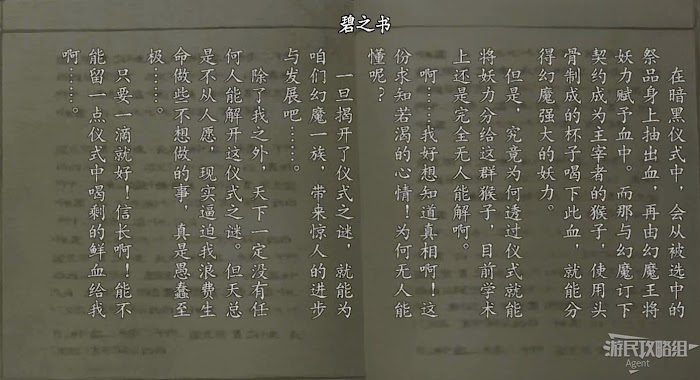 碧之书
在暗黑仪式中，会从被选中的
祭品身上抽出血，再由幻魔王将
妖力赋予血中。而那与幻魔订下
契约成为主宰者的猴子，使用头
骨制成的杯子喝下此血，就能分
得幻魔强大的妖力。
但是，究竟为何透过仪式就能
将妖力分给这群猴子，目前学术
上还是完全无人能解啊。
啊……我好想知道真相啊！这
份求知若渴的心情！为何无人能
懂呢？
一旦揭开了仪式之谜，就能为
咱们幻魔一族，带来惊人的进步
与发展吧……。
除了我之外，天下一定没有任
何人能解开这仪式之谜。但天总
是不从人愿，现实逼迫我浪费生
命做些不想做的事，真是愚蠢至
极……。
只要一滴就好！信长啊！能不
能留一点仪式中喝剩的鲜血给我
啊……。
游民攻略组
Agent